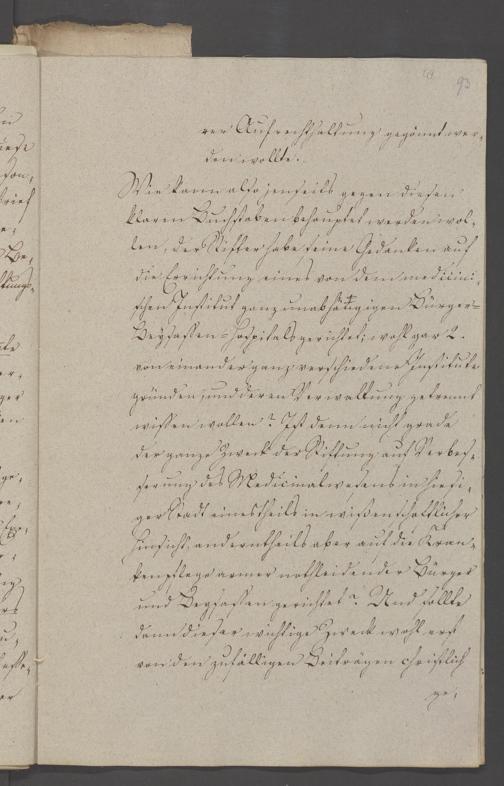 93
rer Aufrechthaltung gegönnt wer-
den wollte.
Wie kann also jenseits gegen diesen
klaren Buchstaben behauptet werden wol-
len, der Stifter habe seine Gedanken auf
die Errichtung eines von dem medicini-
schen Institut ganz unabhängigen Bürger-
Beysassen-Hospitals gerichtet; wohl gar 2.
von einander ganz verschiedene Institute
gründen, und deren Verwaltung getrennt
wissen wollen? Ist denn nicht grade
der ganze Zweck der Stiftung auf Verbes-
serung des Medicinalwesens in hiesi-
ger Stadt einestheils in wissenschaftlicher
Hinsicht, anderntheils aber auf die Kran-
kenpflege armer nothleidender Bürger
und Beysassen gerichtet? Und sollte
dann dieser wichtige Zweck wohl erst
von den zufälligen Beiträgen christlich
ge-